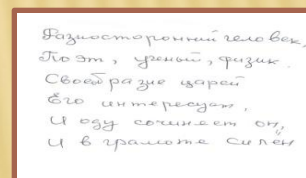 Разносторонний человек,
Поэт, ученый, физик.
Своеобразие царей
Его интересуют,
И оду сочиняет он,
И в грамоте силён